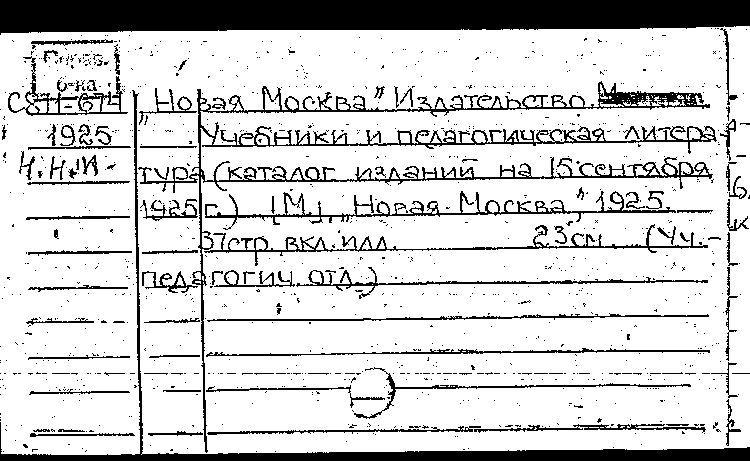 Справ.
б-ка
„Новая Москва." Издательство.
1925 Учебники и педагогическая литера-
тура (каталог изданий на 15 сентября
1925 г.) [М.], „Новая Москва," 1925.
37 стр. вкл. илл. 23 см. (Уч.-
педагогич. отд.)